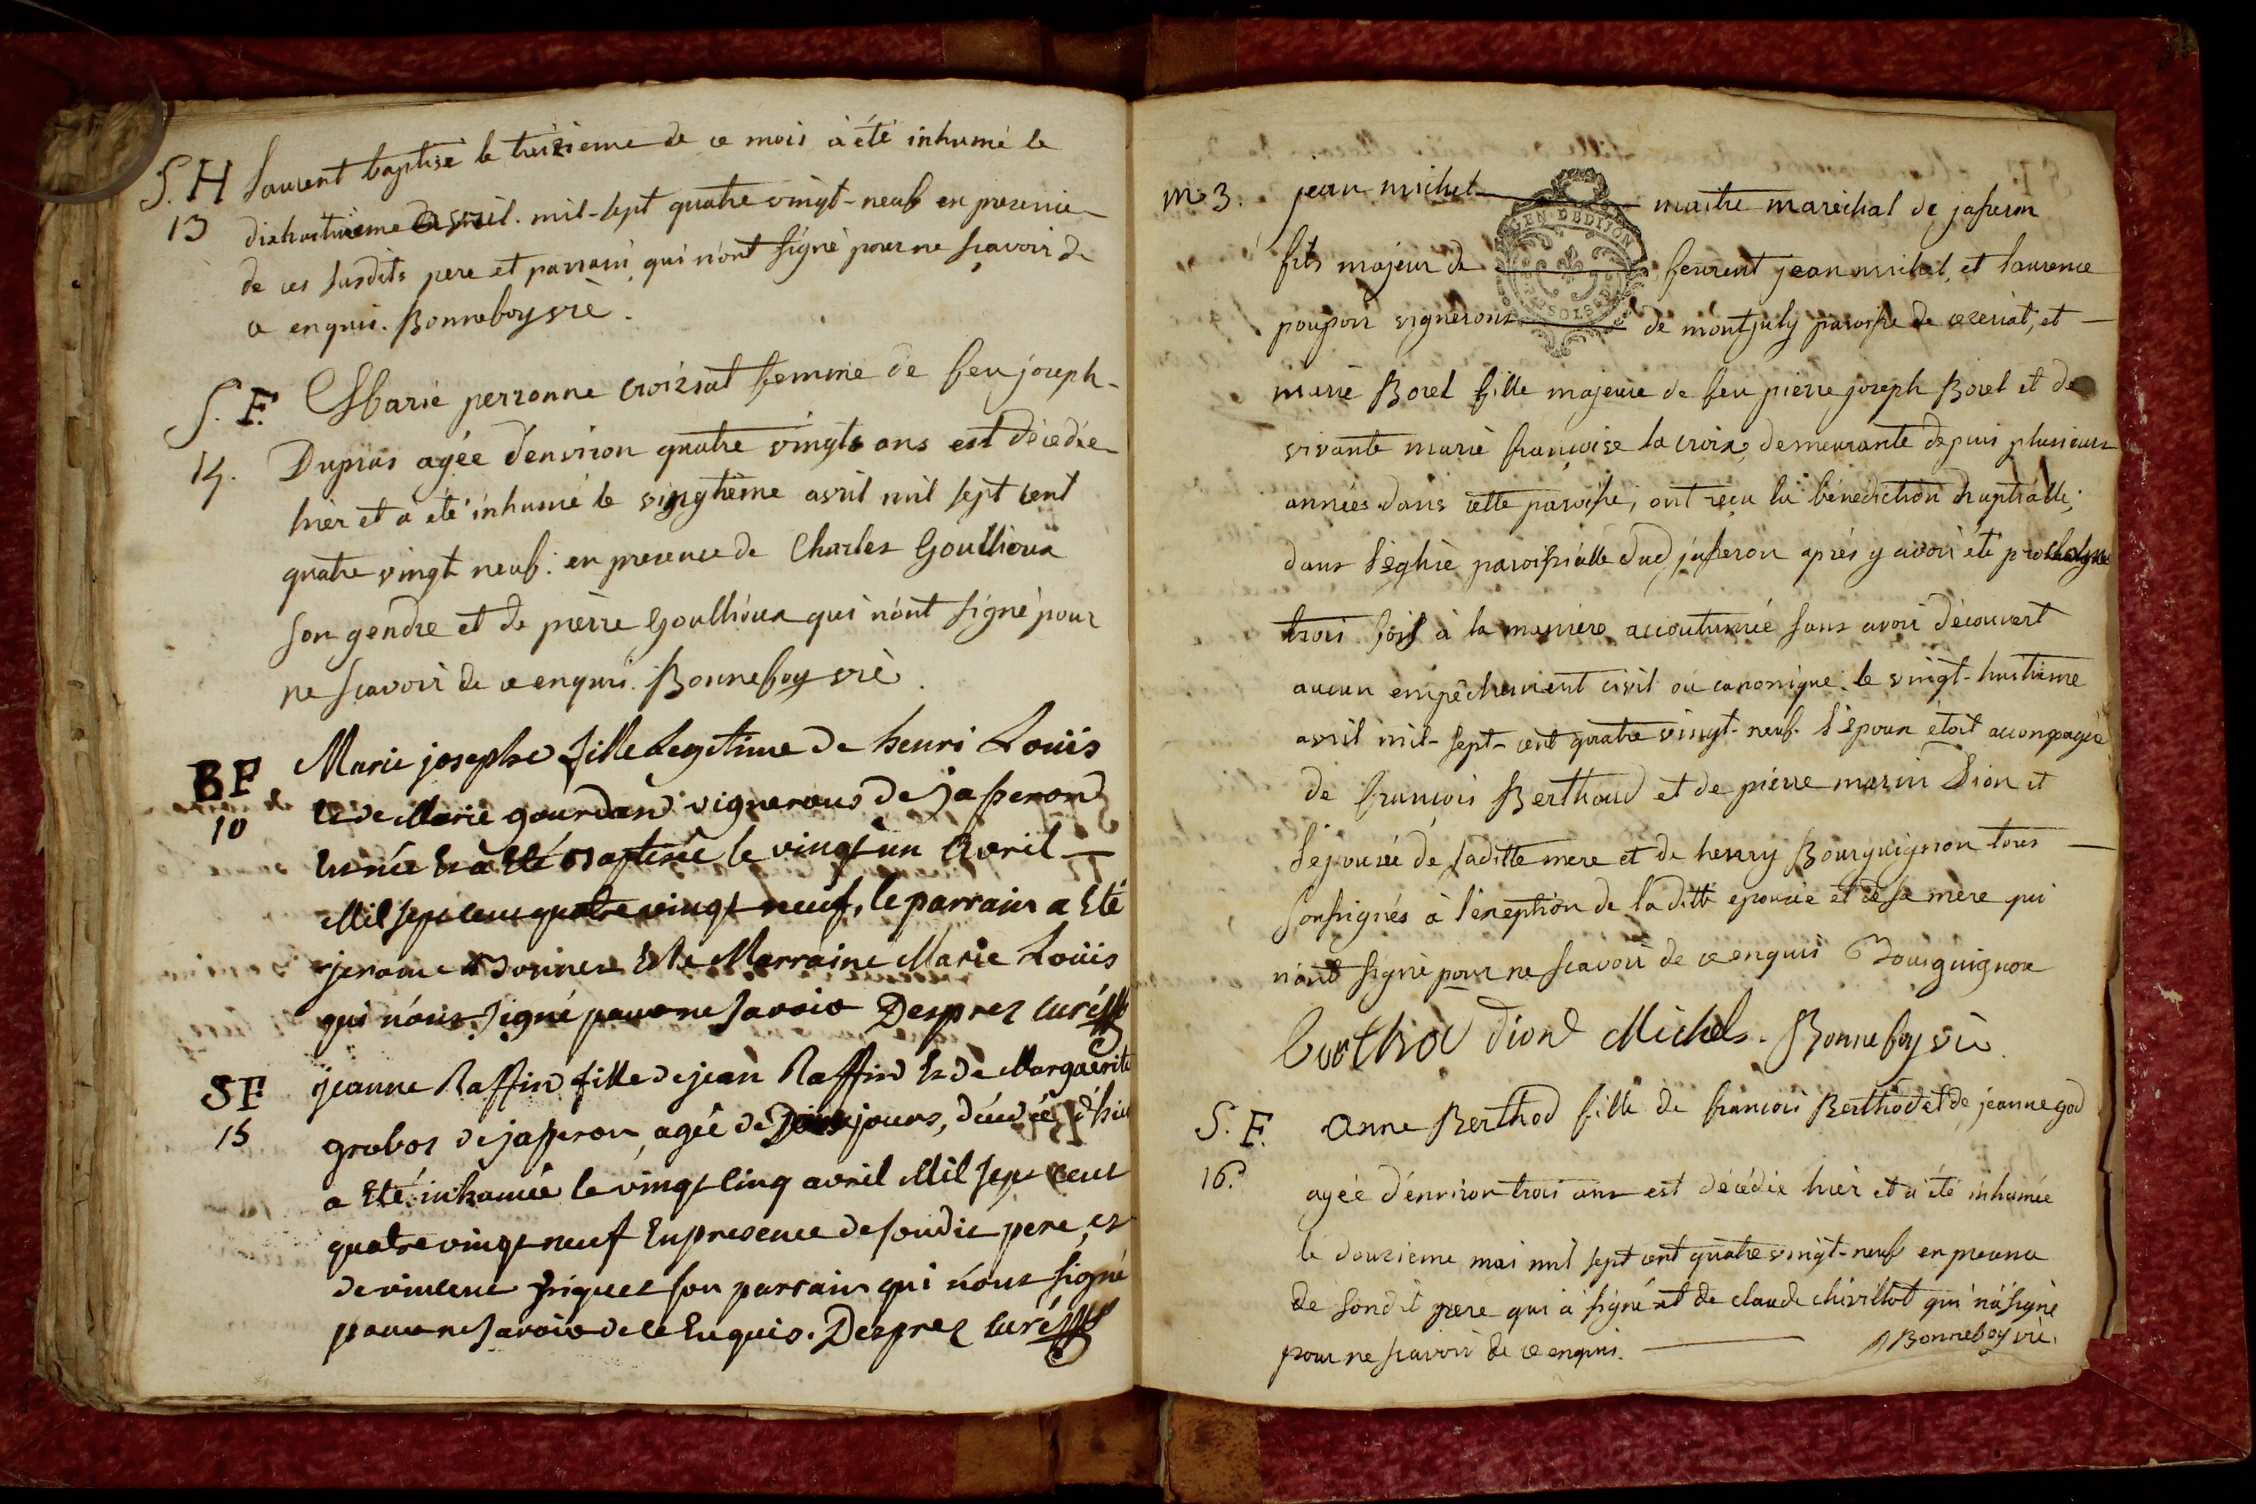 S.H Laurent baptisé le treizieme de ce mois à été inhumé le
13 dixhuitieme avril. mil-sept quatre vingt-neuf en presence
de ces susdits pere et parrain qui n'ont signé pour ne scavoir de
ce enquis. Bonneboy vic.
S.F. Marie perronne croiziat femme de feu joseph-
14. Dupras agée d'environ quatre vingts ans est décédée
hier et a été inhumé le vingtième avril mil sept cent
quatre vingt neuf. en presence de Charles Goullioux
son gendre et de pièrre Goullioux qui n'ont signé pour
ne scavoir de ce enquis. Bonneboy vic.
BF Marie josephe fille Legitime de henri Louis
10 Et de Marie gourdan vignerons de jasseron
Est née Et à Eté Baptisée le vingt un Avril
Mil sept cent quatre vingt neuf, le parrain a Eté
jerome Et la Marraine Marie Louis
qui n'ont signé pour ne savoir Desprez curé
SF jeanne Raffin fille de jean Raffin Et de Marguerite
15 grobos de jasseron, agée de jours, décédée d'hier
a Eté inhumée le vingt cinq avril Mil sept cent
quatre vingt neuf En presence de son dit pere, et
de vincent son parrain qui n'ont signé
pour ne savoir de ce Enquis. Desprez curé
m. 3. jean michel maitre maréchal de jasseron
GEN. DE DIJON
fils majeur de jean michel, et laurence
SOLS
poupon vignerons de montjuly paroisse de ceseriat, et
marie Borel fille majeure de feu pierre joseph Borel et de
vivante marie françoise la croix, demeurante depuis plusieurs
années dans cette paroisse, ont reçu la bénédiction nuptialle,
dans l'eglise paroissialle dud jasseron après y avoir été proclamé
trois fois à la manière accoutumée sans avoir découvert
aucun empêchement civil ou canonique. le vingt-huitieme
avril mil-sept-cent quatre vingt-neuf. l'epoux étoit accompagné
de françois Berthoud et de pierre marin Dion et
l'epousée de saditte mere et de henry Bourguignon tous
soussignés à l'exeption de laditte epousée et de sa mère qui
n'ont signé pour ne scavoir de ce enquis Bourguignon
berthod dion Michel. Bonneboy vic.
S. F. Anne Berthod fille de françois Berthod et de jeanne god
16. agée d'environ trois ans est décédée hier et a été inhumée
le douzieme mai mil sept cent quatre vingt-neuf en presence
de sondit pere qui a signé et de claude chivillot qui n'a signé
pour ne scavoir de ce enquis. Bonneboy vic.